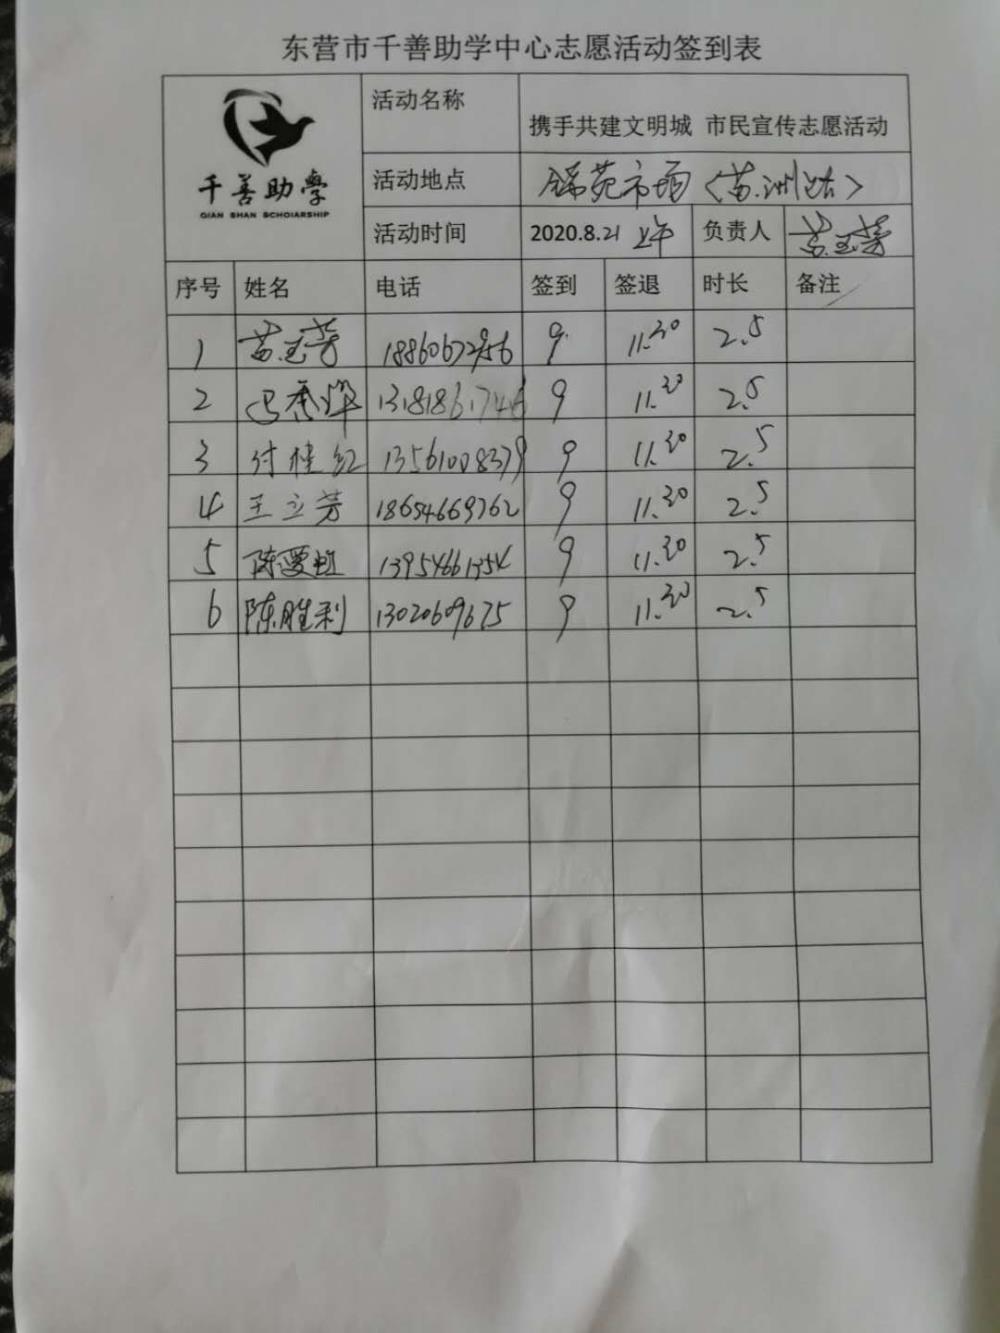 东营市千善助学中心志愿活动签到表
千善助學
QIAN SHAN SCHOIARSHIP
活动名称
携手共建文明城 市民宣传志愿活动
活动地点 锦苑市场
活动时间 2020.8.21 上午 负责人 苗玉芳
序号 姓名 电话 签到 签退 时长 备注
1 苗玉芳 18860672956 9 11.30 2.5
2 13181861746 9 11.30 2.5
3 付桂红 13561008379 9 11.30 2.5
4 王立芳 18654669762 9 11.30 2.5
5 9 11.30 2.5
6 陈胜利 13020609675 9 11.30 2.5